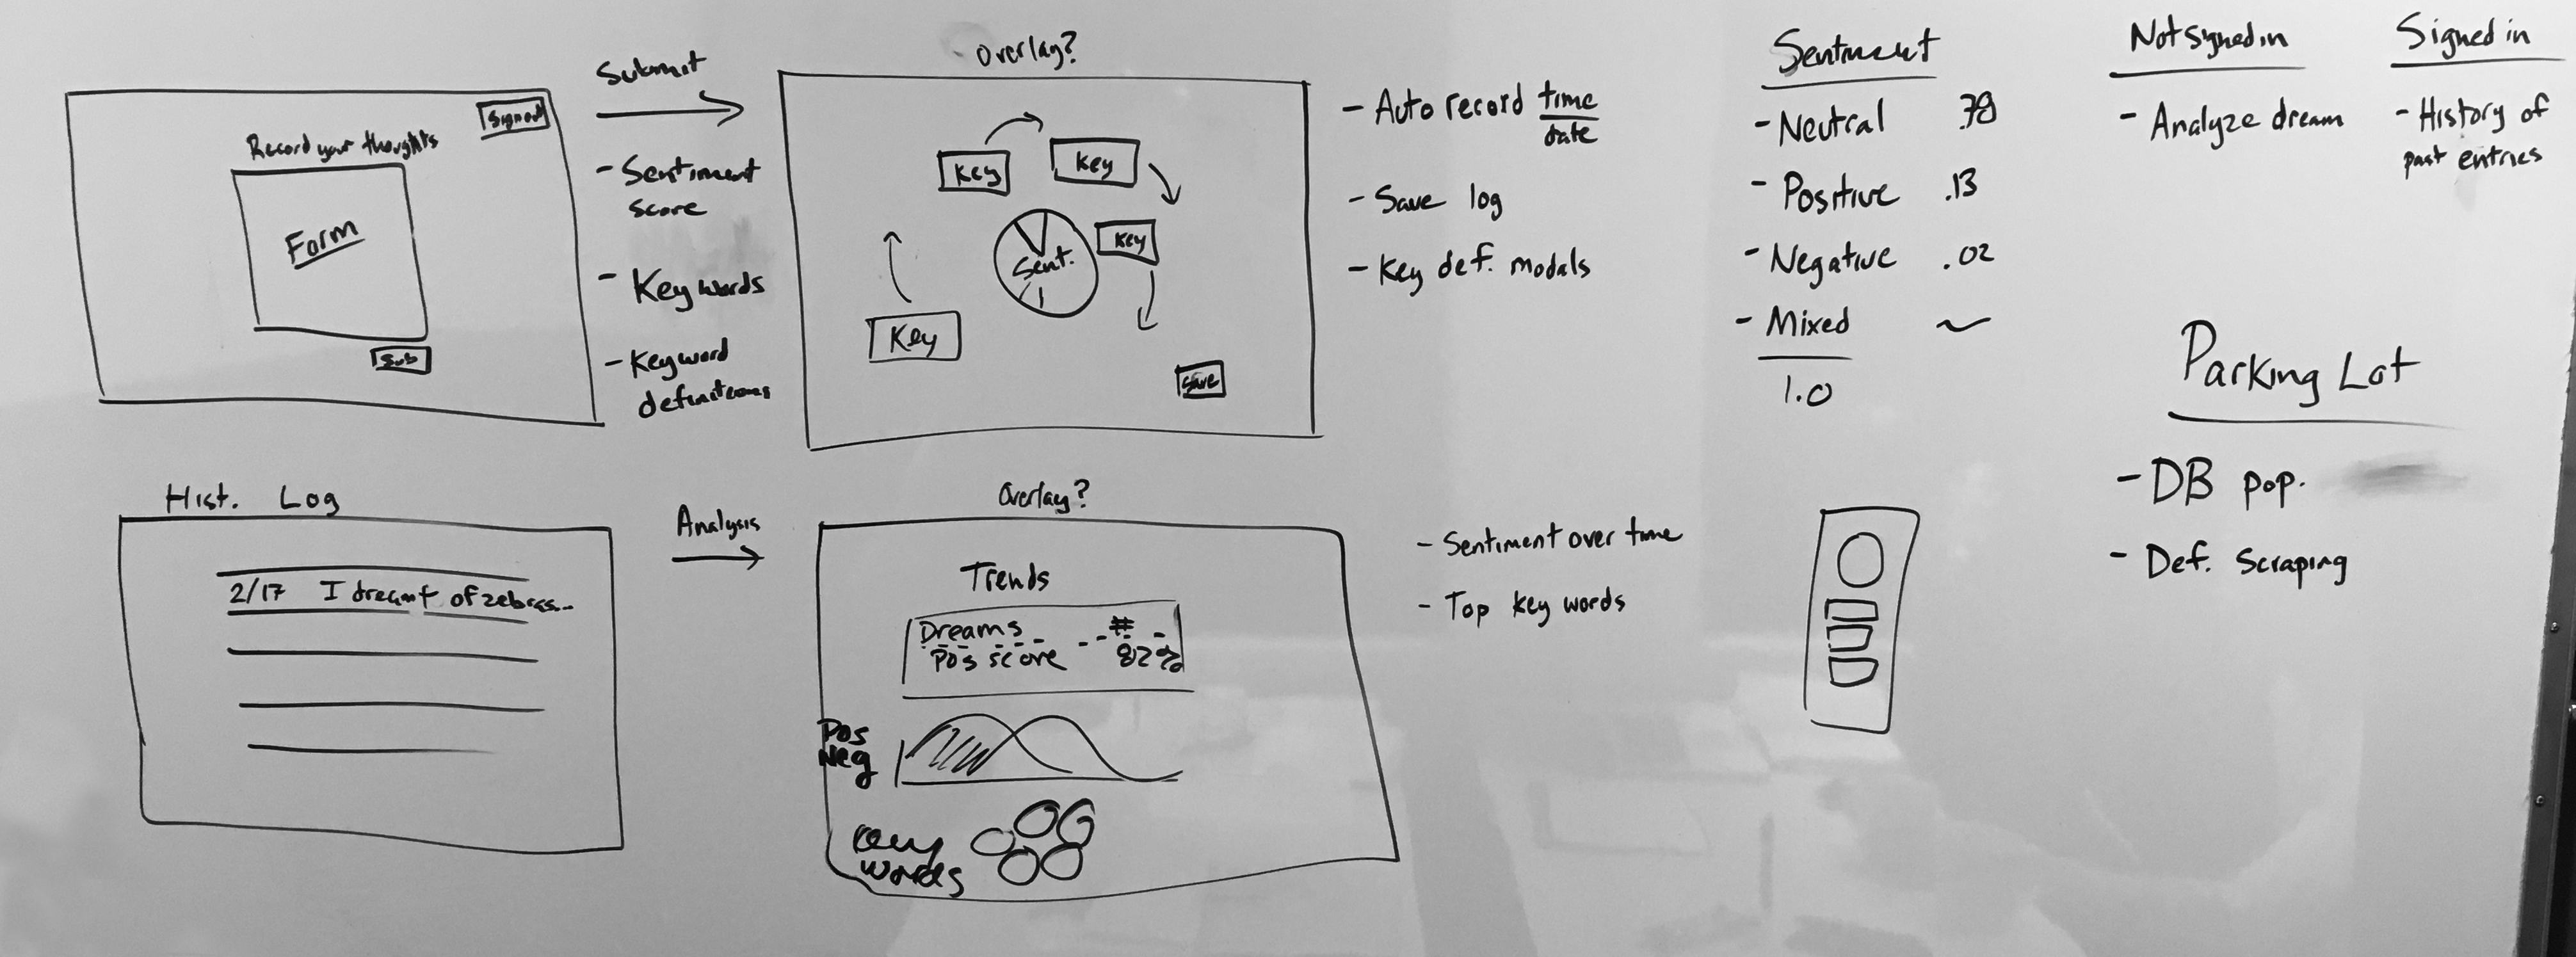 Record your thoughts
Form
Sub
Submit
- Sentiment
score
- Key words
- Keyword
definitions
Overlay?
Key
Key
Key
Key
Sent.
Save
- Auto record time
date
- Save log
- Key def. modals
Sentiment
- Neutral .78
- Positive .13
- Negative .02
- Mixed ~
1.0
Not Signed in
- Analyze dream
Signed in
- History of
past entries
Parking Lot
- DB pop.
- Def. Scraping
Hist. Log
2/17 I dreamt of zebras...
Analysis
Overlay?
Trends
Dreams #
Pos score 82%
Pos
Neg
Key
words
- Sentiment over time
- Top key words